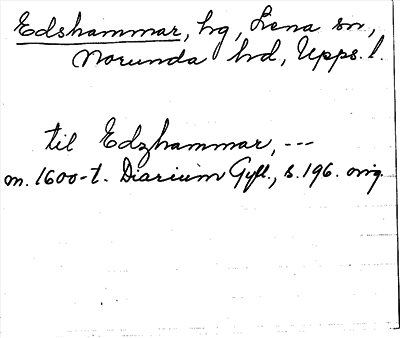 Edshammar, hg, Lena sn,
Norunda hd, Upps. l.
til Edzhammar, ---
m. 1600-t. Diarium Gyll., s. 196. orig.